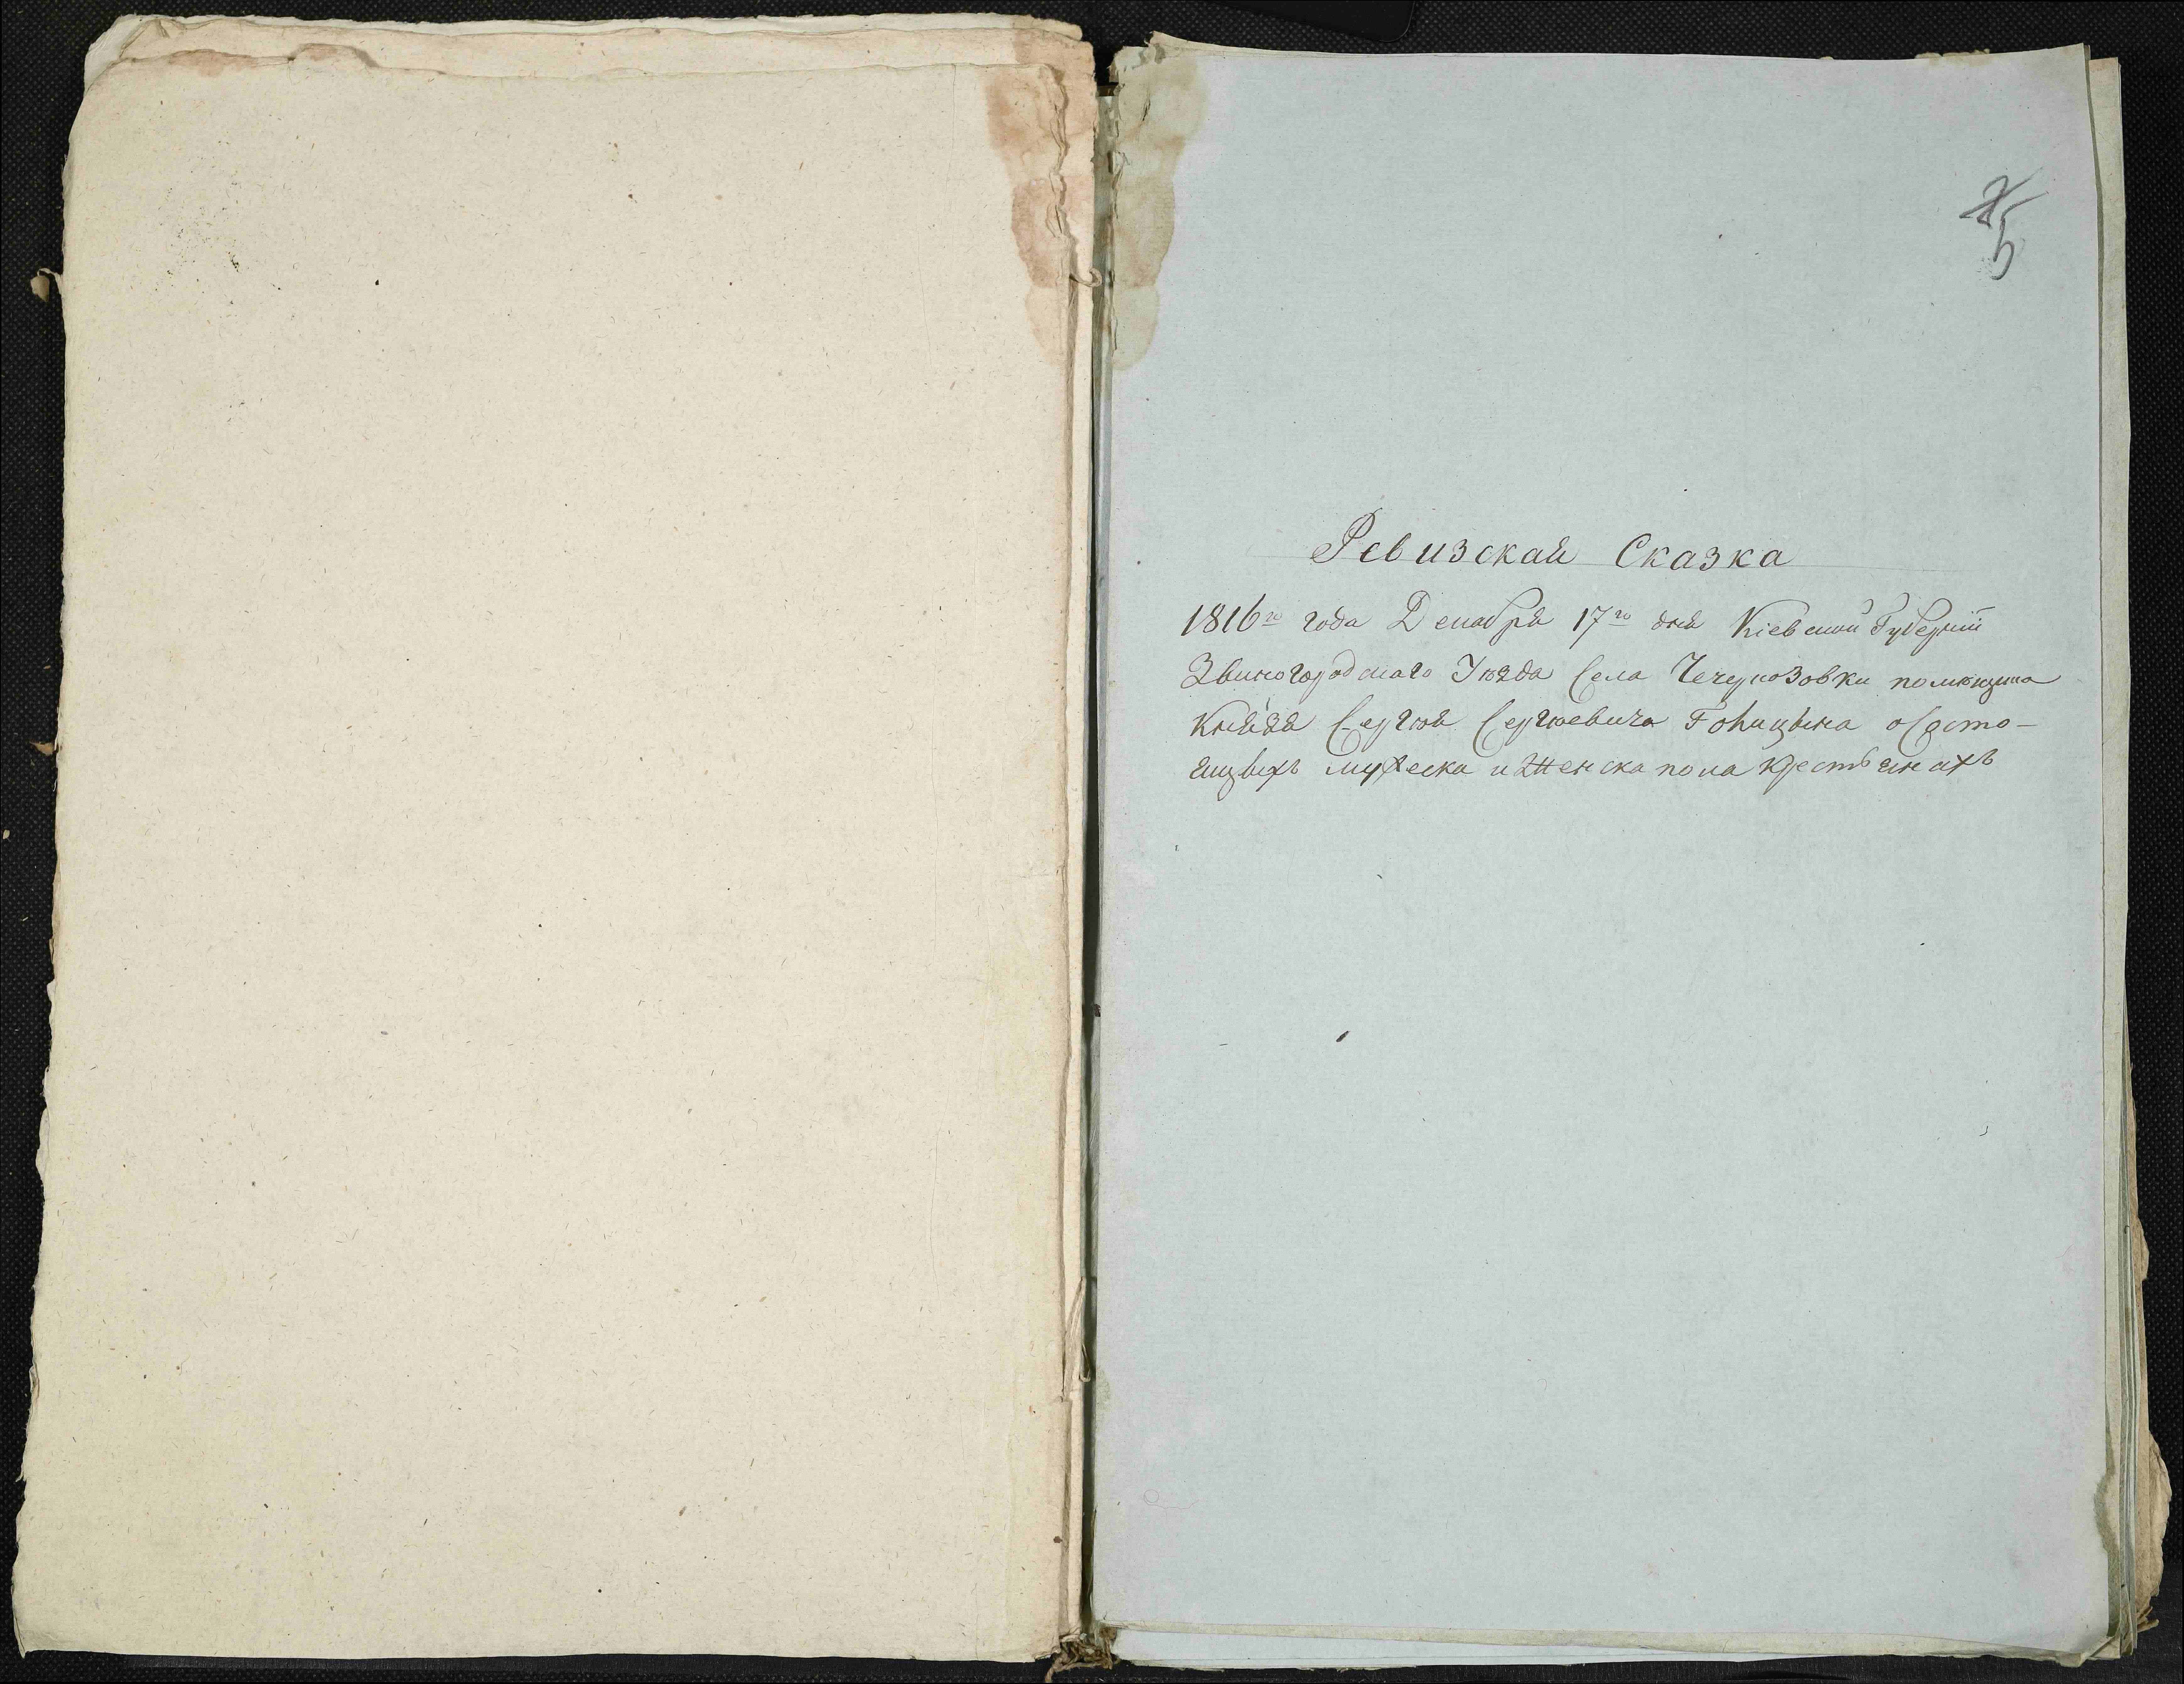 5
Ревизская Сказка
1816го года Декабря 17го дня Кіевской Губерніи
Звиногородскаго Уѣзда Села Чечуповки помѣщика
Князя Сергѣя Сергѣевича Голицына о Состо-
ящыхъ мужеска и женска пола крестьянахъ